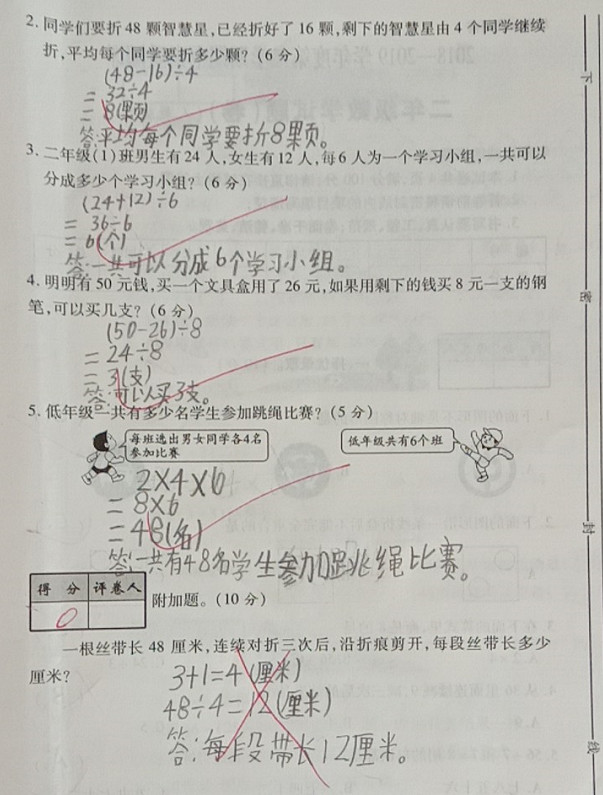 2. 同学们要折 48 颗智慧星,已经折好了 16 颗,剩下的智慧星由 4 个同学继续
折,平均每个同学要折多少颗?(6 分)
(48-16)÷4
=32÷4
=8(颗)
答:平均每个同学要折8颗。
3. 二年级(1)班男生有 24 人,女生有 12 人,每 6 人为一个学习小组,一共可以
分成多少个学习小组?(6 分)
(24+12)÷6
=36÷6
=6(个)
答:一共可以分成6个学习小组。
4. 明明有 50 元钱,买一个文具盒用了 26 元,如果用剩下的钱买 8 元一支的钢
笔,可以买几支?(6 分)
(50-26)÷8
=24÷8
=3(支)
答:可以买3支。
5. 低年级一共有多少名学生参加跳绳比赛?(5 分)
每班选出男女同学各4名
参加比赛
低年级共有6个班
2×4×6
=8×6
=48(名)
答:一共有48名学生参加跳绳比赛。
得 分 评卷人
0
附加题。(10 分)
一根丝带长 48 厘米,连续对折三次后,沿折痕剪开,每段丝带长多少
厘米?
3+1=4(厘米)
48÷4=12(厘米)
答:每段带长12厘米。
下
密
封
线